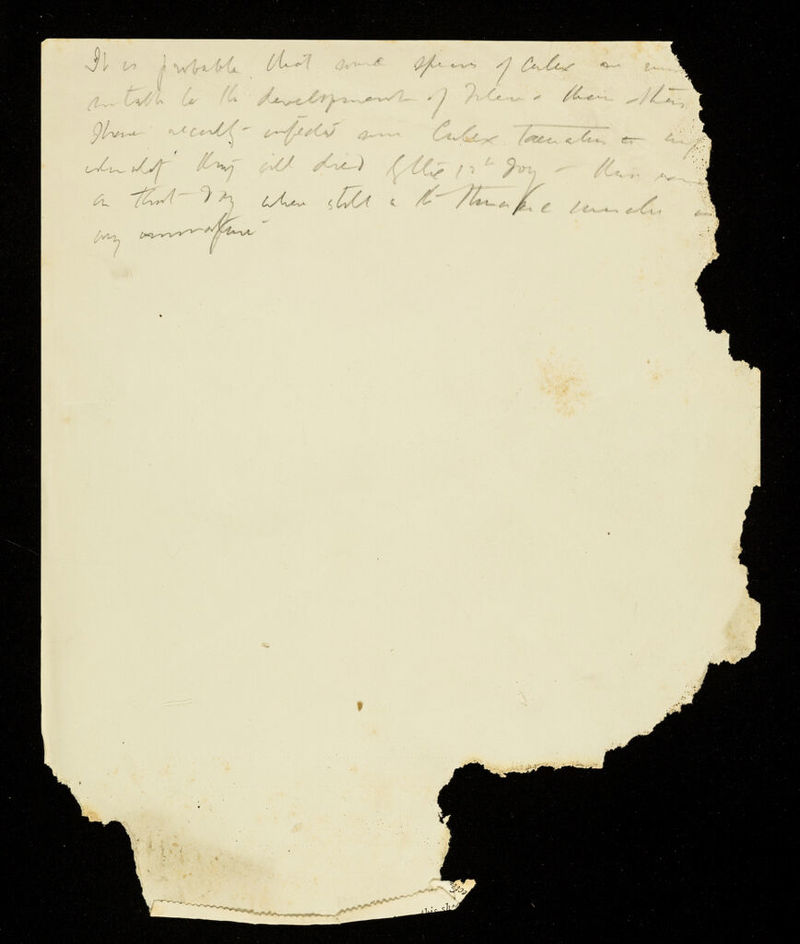 It is probable that some species of Culex are more
suitable to the development of Filaria than others
I have recently infected some Culex taeniatus
they all died by the 13th day –
on that day when still in the thoracic muscles
very immature
this she